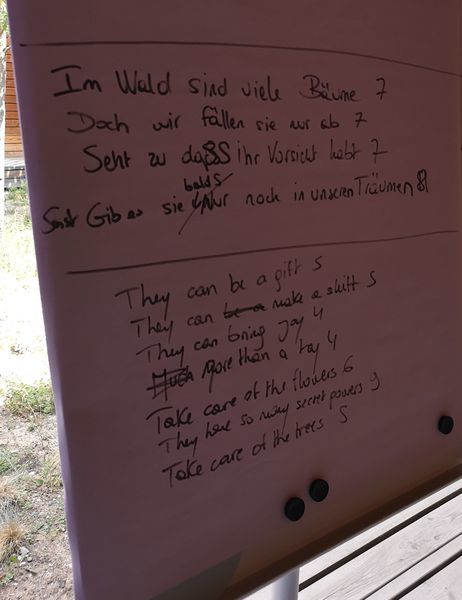 Im Wald sind viele Bäume 7
Doch wir fällen sie nur ab 7
Seht zu daßS ihr Vorsicht habt 7
balds
Sonst Gib es sie Nur noch in unseren Träumen
They can be a gift 5
They can be a make a shift 5
They can bring Joy 4
Much More than a toy 4
Take care of the flowers 6
They have so many secret powers 9
Take care of the trees 5